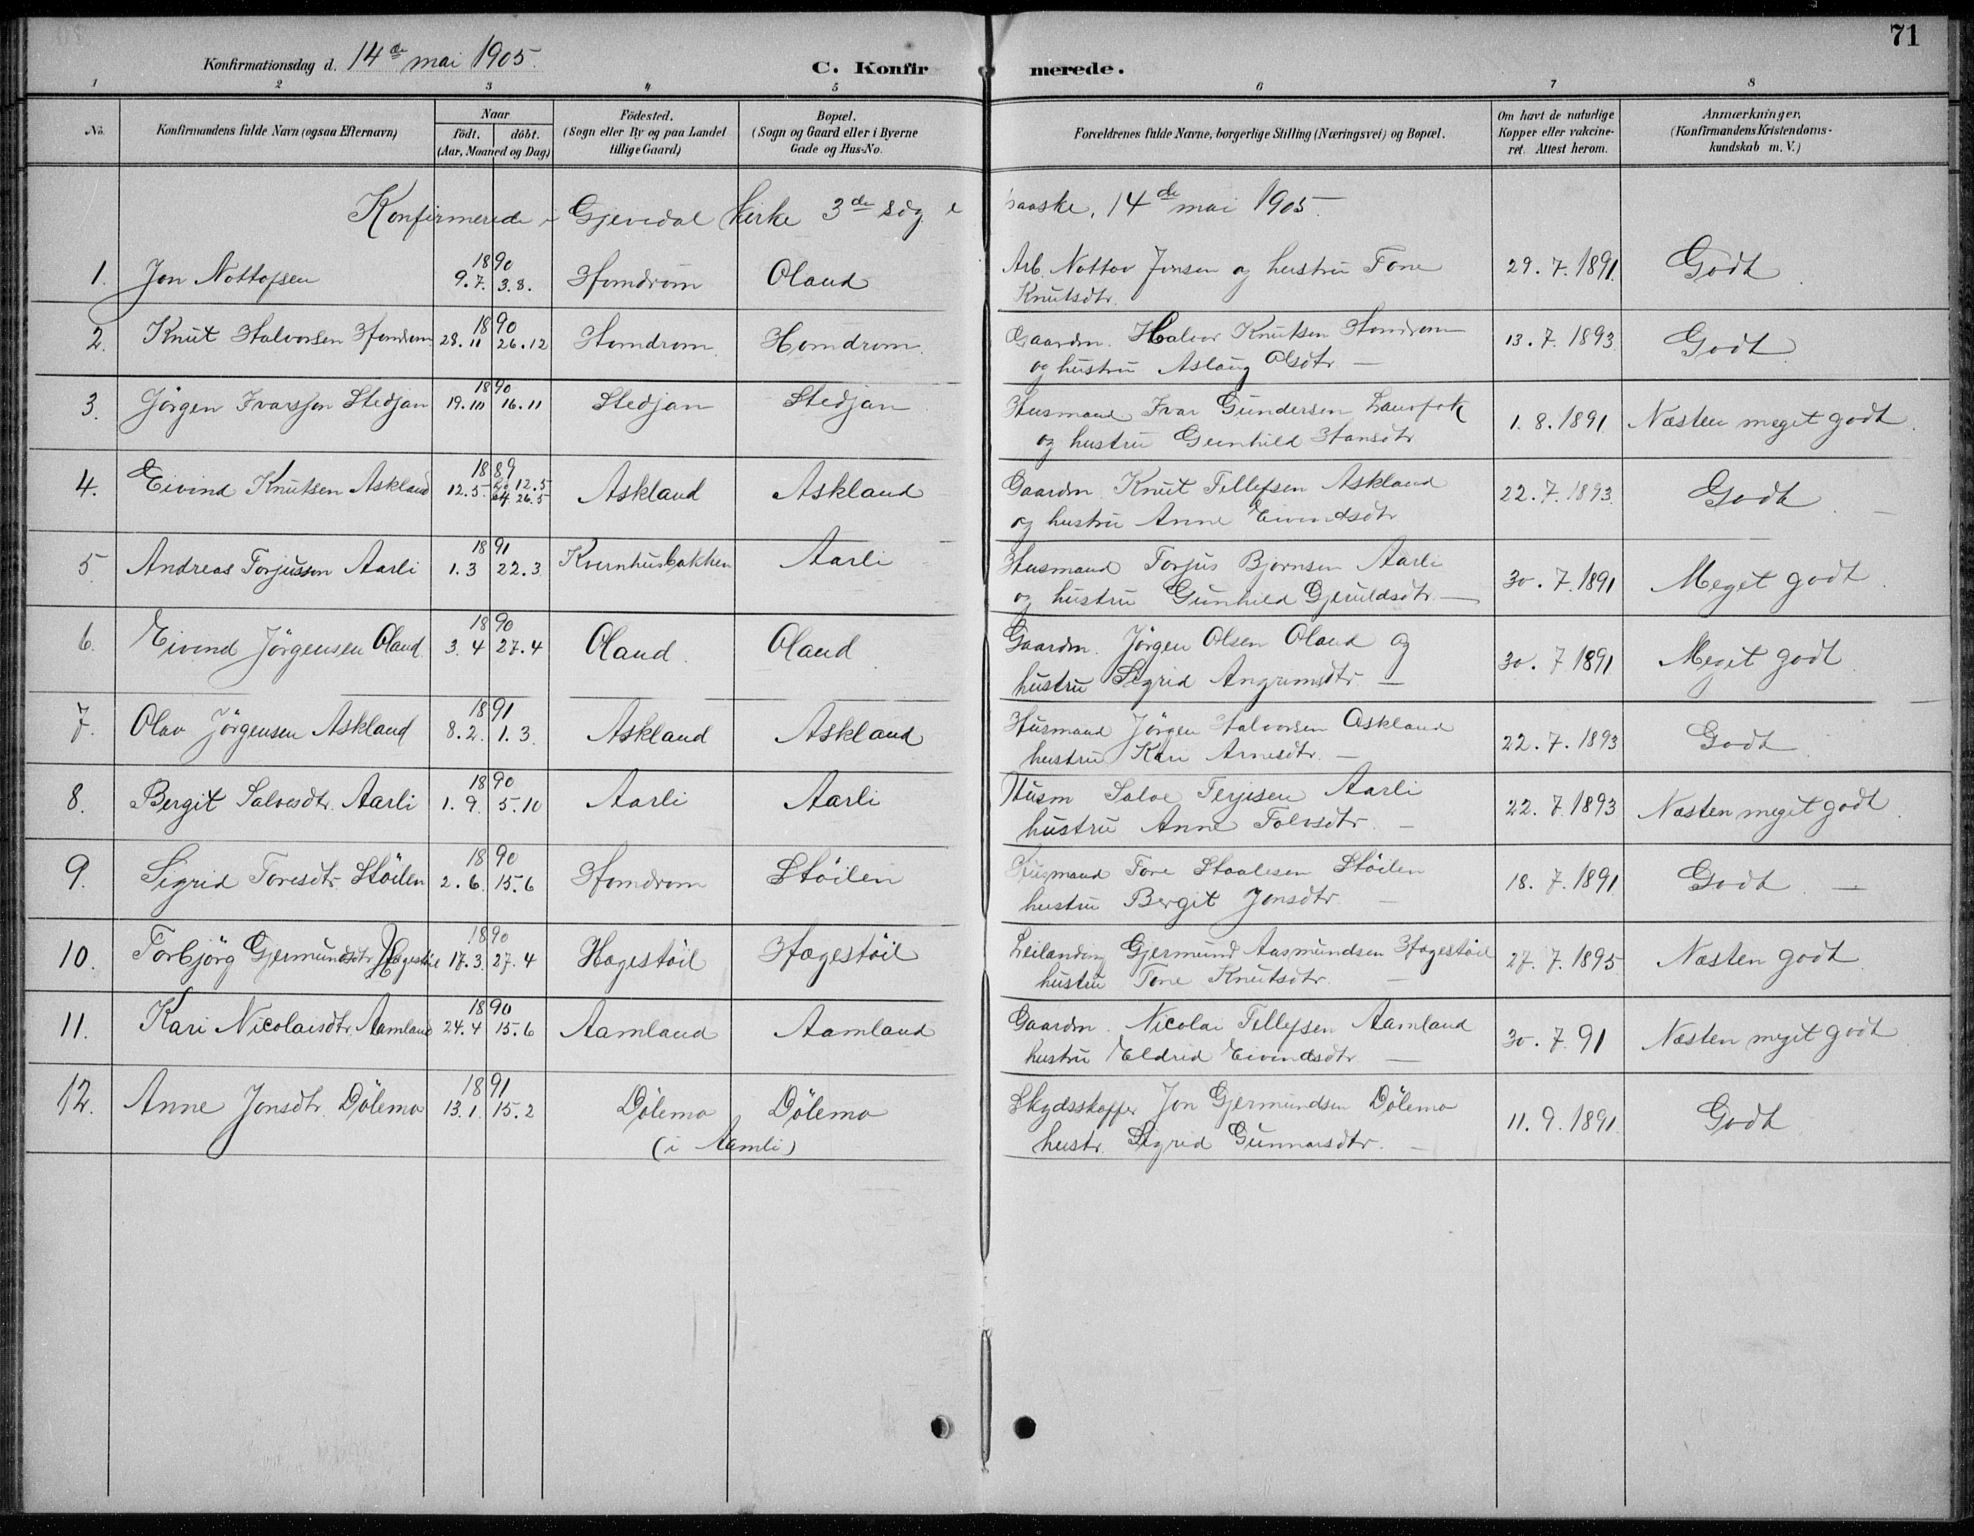 71
Konfirmationsdag d. 14de mai 1905.
C. Konfirmerede.
1 2 3 4 5 6 7 8
No. Konfirmandens fulde Navn (ogsaa Efternavn) Naar födt. döbt. (Aar, Maaned og Dag) Födested. (Sogn eller By og paa Landet tillige Gaard) Bopæl. (Sogn og Gaard eller i Byerne Gade og Hus-No. Forældrenes fulde Navne, borgerlige Stilling (Næringsvei) og Bopæl. Om havt de naturlige Kopper eller vakcineret. Attest herom. Anmærkninger. (Konfirmandens Kristendomskundskab m. V.)
Konfirmerede i Gjevedal kirke 3de søg e paaske, 14de mai 1905.
1. Jon Nottofsen 1890 9.7. 3.8. Homdrom Oland Arb. Nottov Jonsen og hustru Tone 29.7.1891 Godt
Knutsdtr.
2. Knut Halvorsen Homdrom 1890 28.11 26.12 Homdrom Homdrom. Gaardm. Halvor Knutsen Homdrom 13.7.1893 Godt
og hustru Aslaug Olsdtr —
3. Jörgen Ivarssen Stedjan 1890 19.10 16.11 Stedjan Stedjan Husmand Ivar Gundersen 1.8.1891 Næsten meget godt.
og hustru Gunhild Hansdtr
4. Eivind Knutsen Askland 1889 12.5. 12.5 26.5 Askland Askland Gaardm. Knut Tellefsen Askland 22.7.1893 Godt.
og hustru Anne Eivindsdtr
5. Andreas Torjussen Aarli 1891 1.3 22.3 Kvernhusbakken Aarli Husmand Torjus Bjornsen Aarli 30.7.1891 Meget godt.
og hustru Gunhild Gjeruldsdtr. —
6. Eivind Jörgensen Oland. 1890 3.4 27.4 Oland. Oland. Gaardm. Jörgen Olsen Oland og 30.7 1891 Meget godt.
hustru Sigrid Angrimsdtr. —
7. Olav Jörgensen Askland 1891 8.2. 1.3. Askland Askland Husmand Jörgen Halvorsen Askland 22.7.1893 Godt
hustru Kari Arnesdtr. —
8. Bergit Salvesdtr. Aarli 1890 1.9. 5.10 Aarli Aarli Husm Salve Terjesen Aarli 22.7.1893 Næsten meget godt.
hustru Anne Tolvsdtr. —
9. Sigrid Toresdtr. Stöilen 1890 2.6. 15.6 Homdrom Stöilen Husmand Tore Staalesen Stöilen 18.7.1891 Godt. —
hustru Bergit Jonsdtr. —
10. Torbjörg Gjermundsdtr Hægestöil 1890 17.3. 27.4 Hagestöil Hægestöil Leilænding Gjermund Aasmundsen Hægestöil 27.7.1895 Næsten godt.
hustru Tone Knutsdtr. —
11. Kari Nicolaisdtr. Aamland 1890 24.4 15.6 Aamland Aamland Gaardm. Nicolai Tellefsen Aamland 30.7.91 Næsten meget godt.
hustru Eldrid Eivindsdtr. —
12. Anne Jonsdtr. Dölemo 1891 13.1. 15.2 Dölemo Dölemo Skydsskaffer Jon Gjermundsen Dölemo 11.9.1891. Godt
(i Aamli) hustr. Sigrid Gunnarsdtr. —